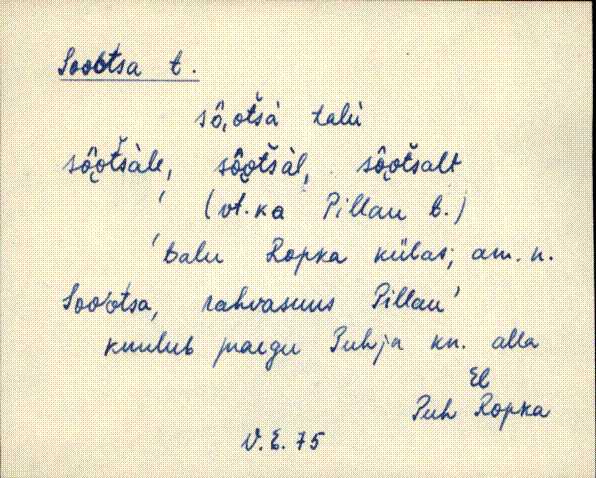 Sootsa t.
sô̭otšà talù
sô̭otšàle, sô̭otšàl, sô̭otšalt
(vt. ka Pillau t.)
'talu Ropka külas; am. n.
Sootsa, rahvasuus Pillau'
kuulub praegu Puhja kn. alla
El
Puh Ropka
V.E. 75